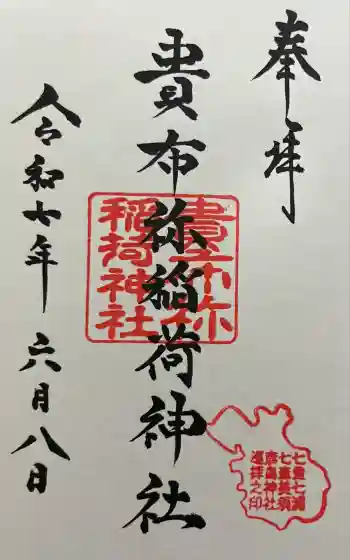 奉拝
貴布祢稲荷神社
貴布祢
稲荷神社
令和七年六月八日
七浦七浦
七重
神社
巡拝之印